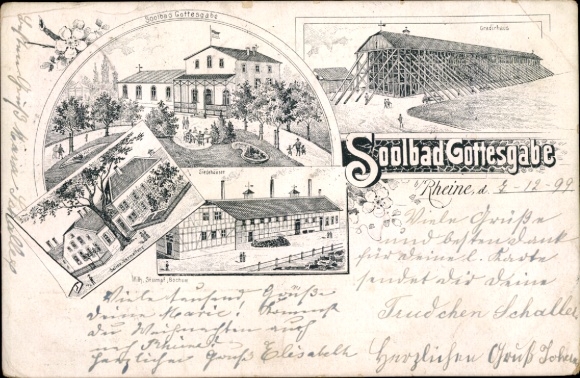 Soolbad Gottesgabe
Gradirhaus
Soolbad Gottesgabe
b/Rheine, d. 3-12-99
Siedehäuser
Wilh. Stumpf, Bochum
Viele Grüße
und besten Dank
für deine l. Karte
sendet dir deine
Trudchen Schaller
Viele tausend Grüße
deine Marie! Kommst
du Weihnachten auch
nach Rheine?
Herzlichen Gruß Elisabeth
Herzlichen Gruß